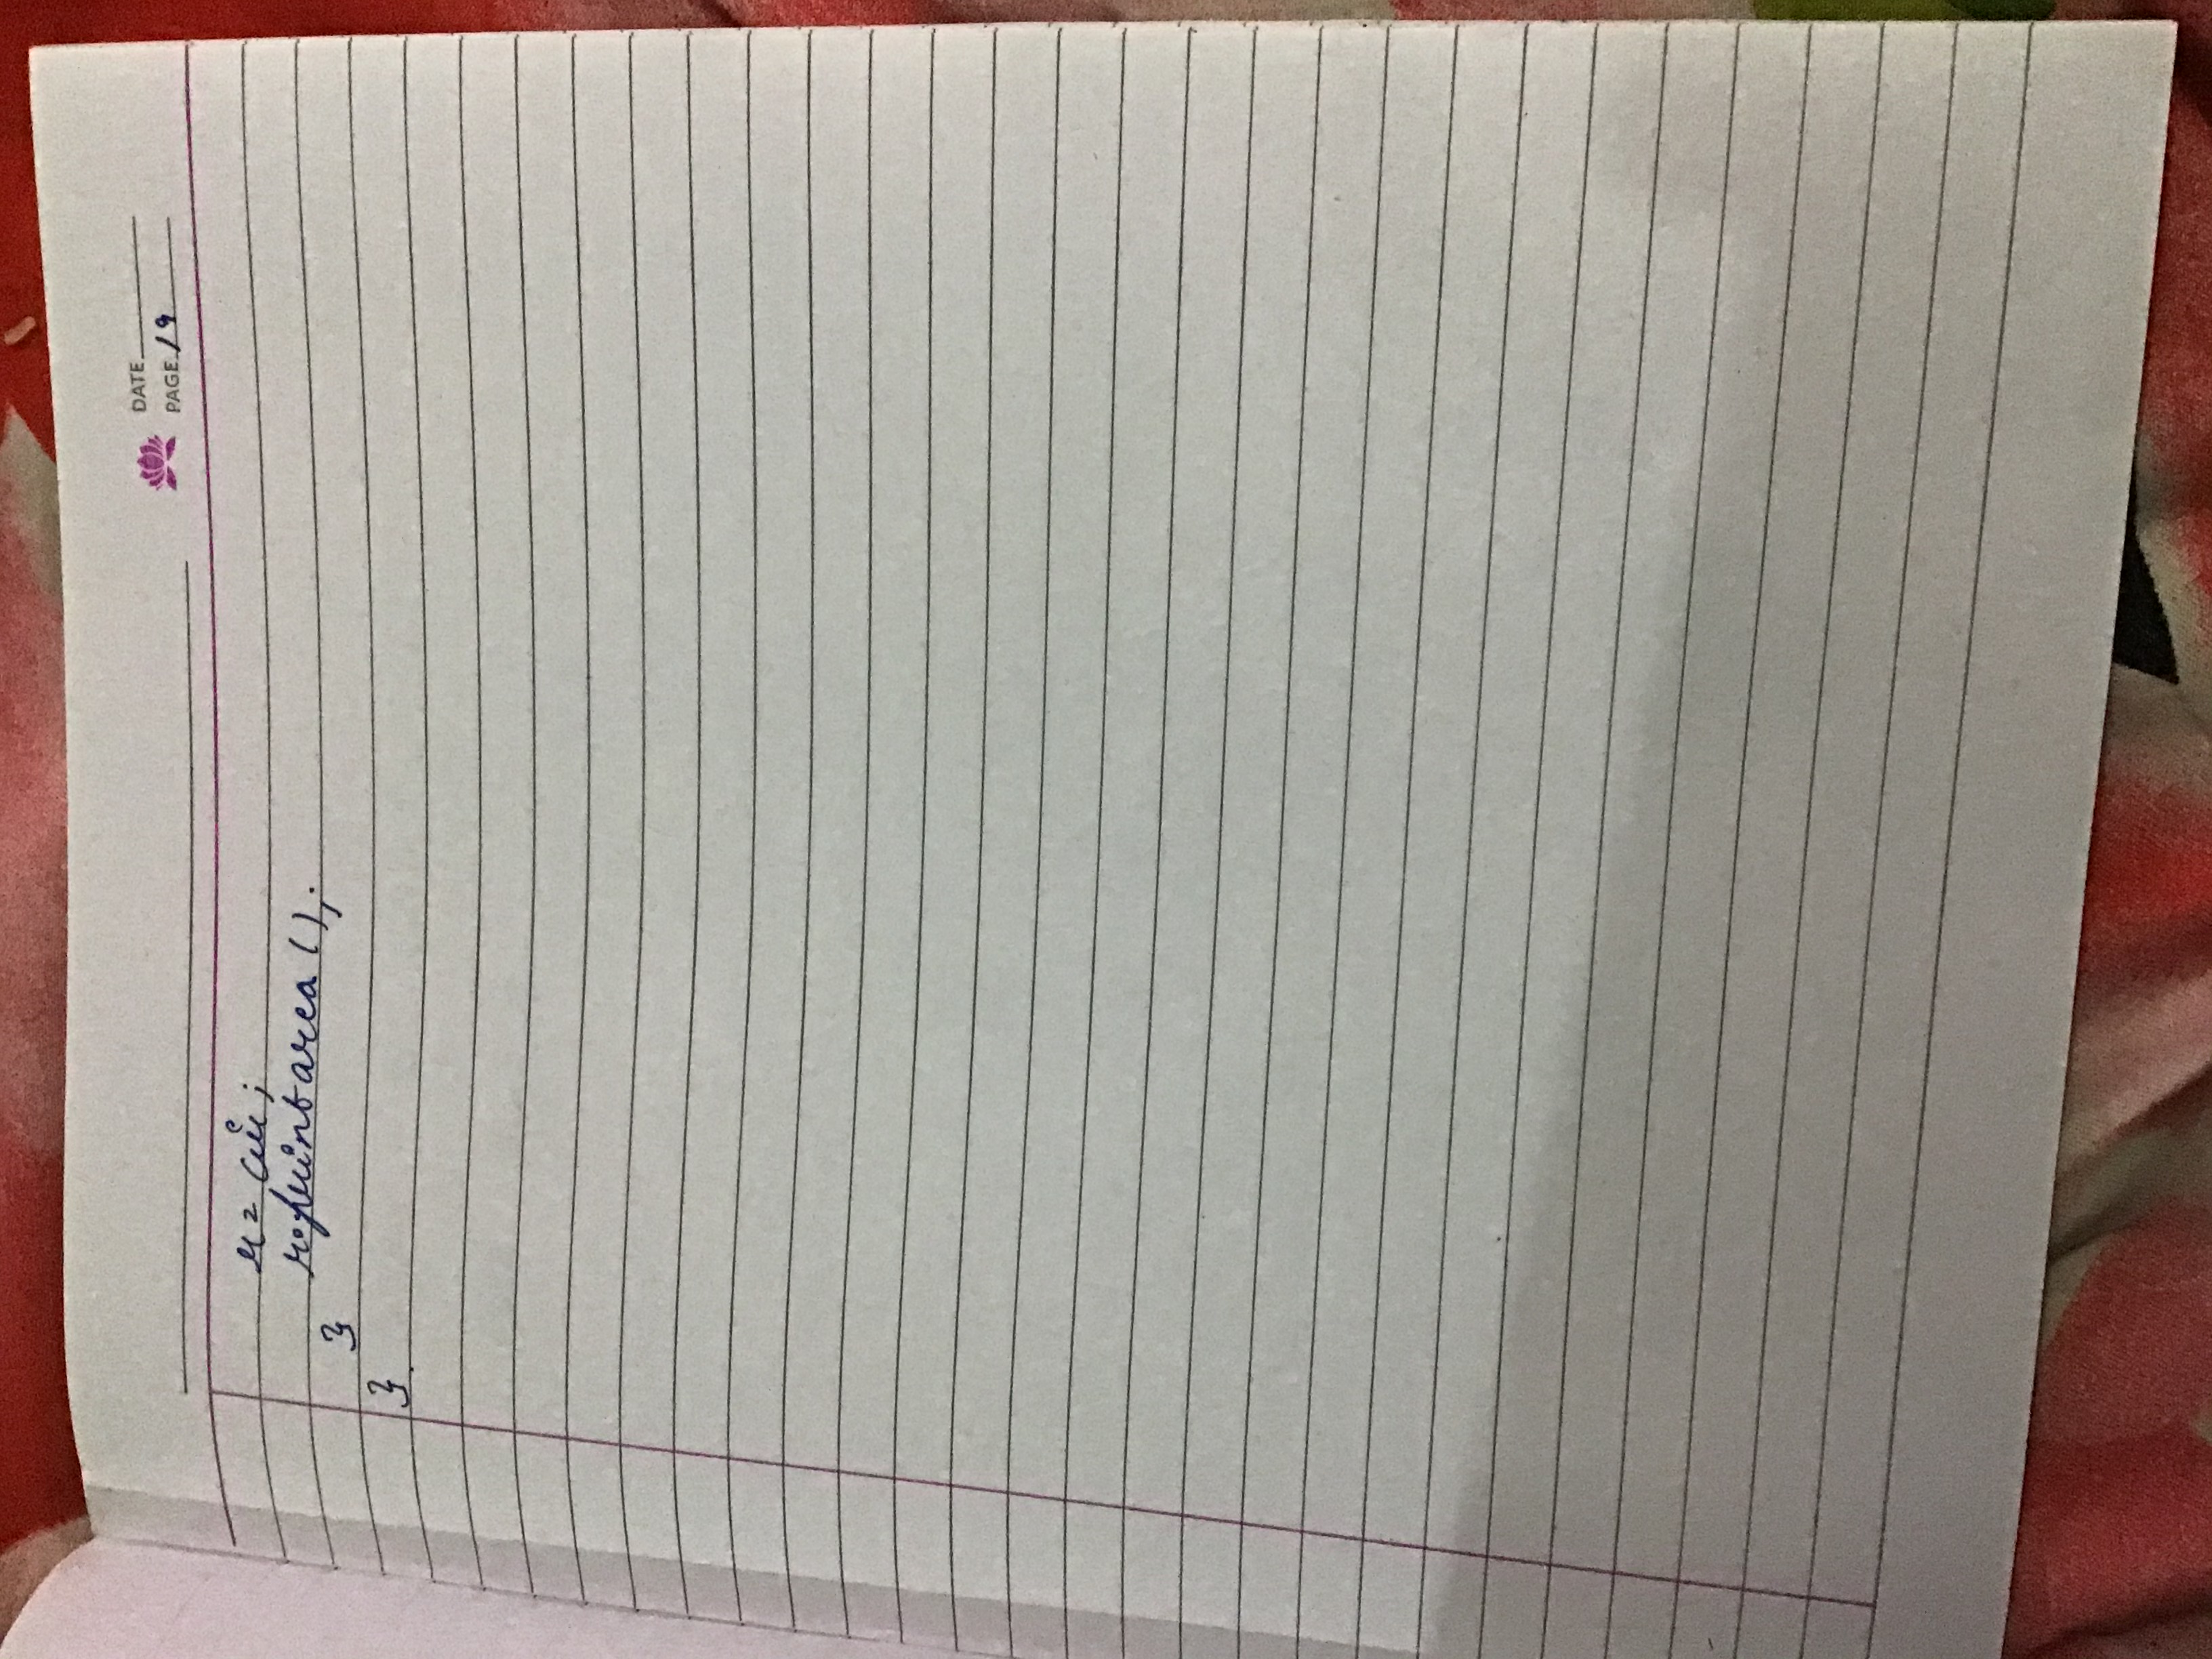 DATE
PAGE 19
r = cir;
r.printarea();
}
}.